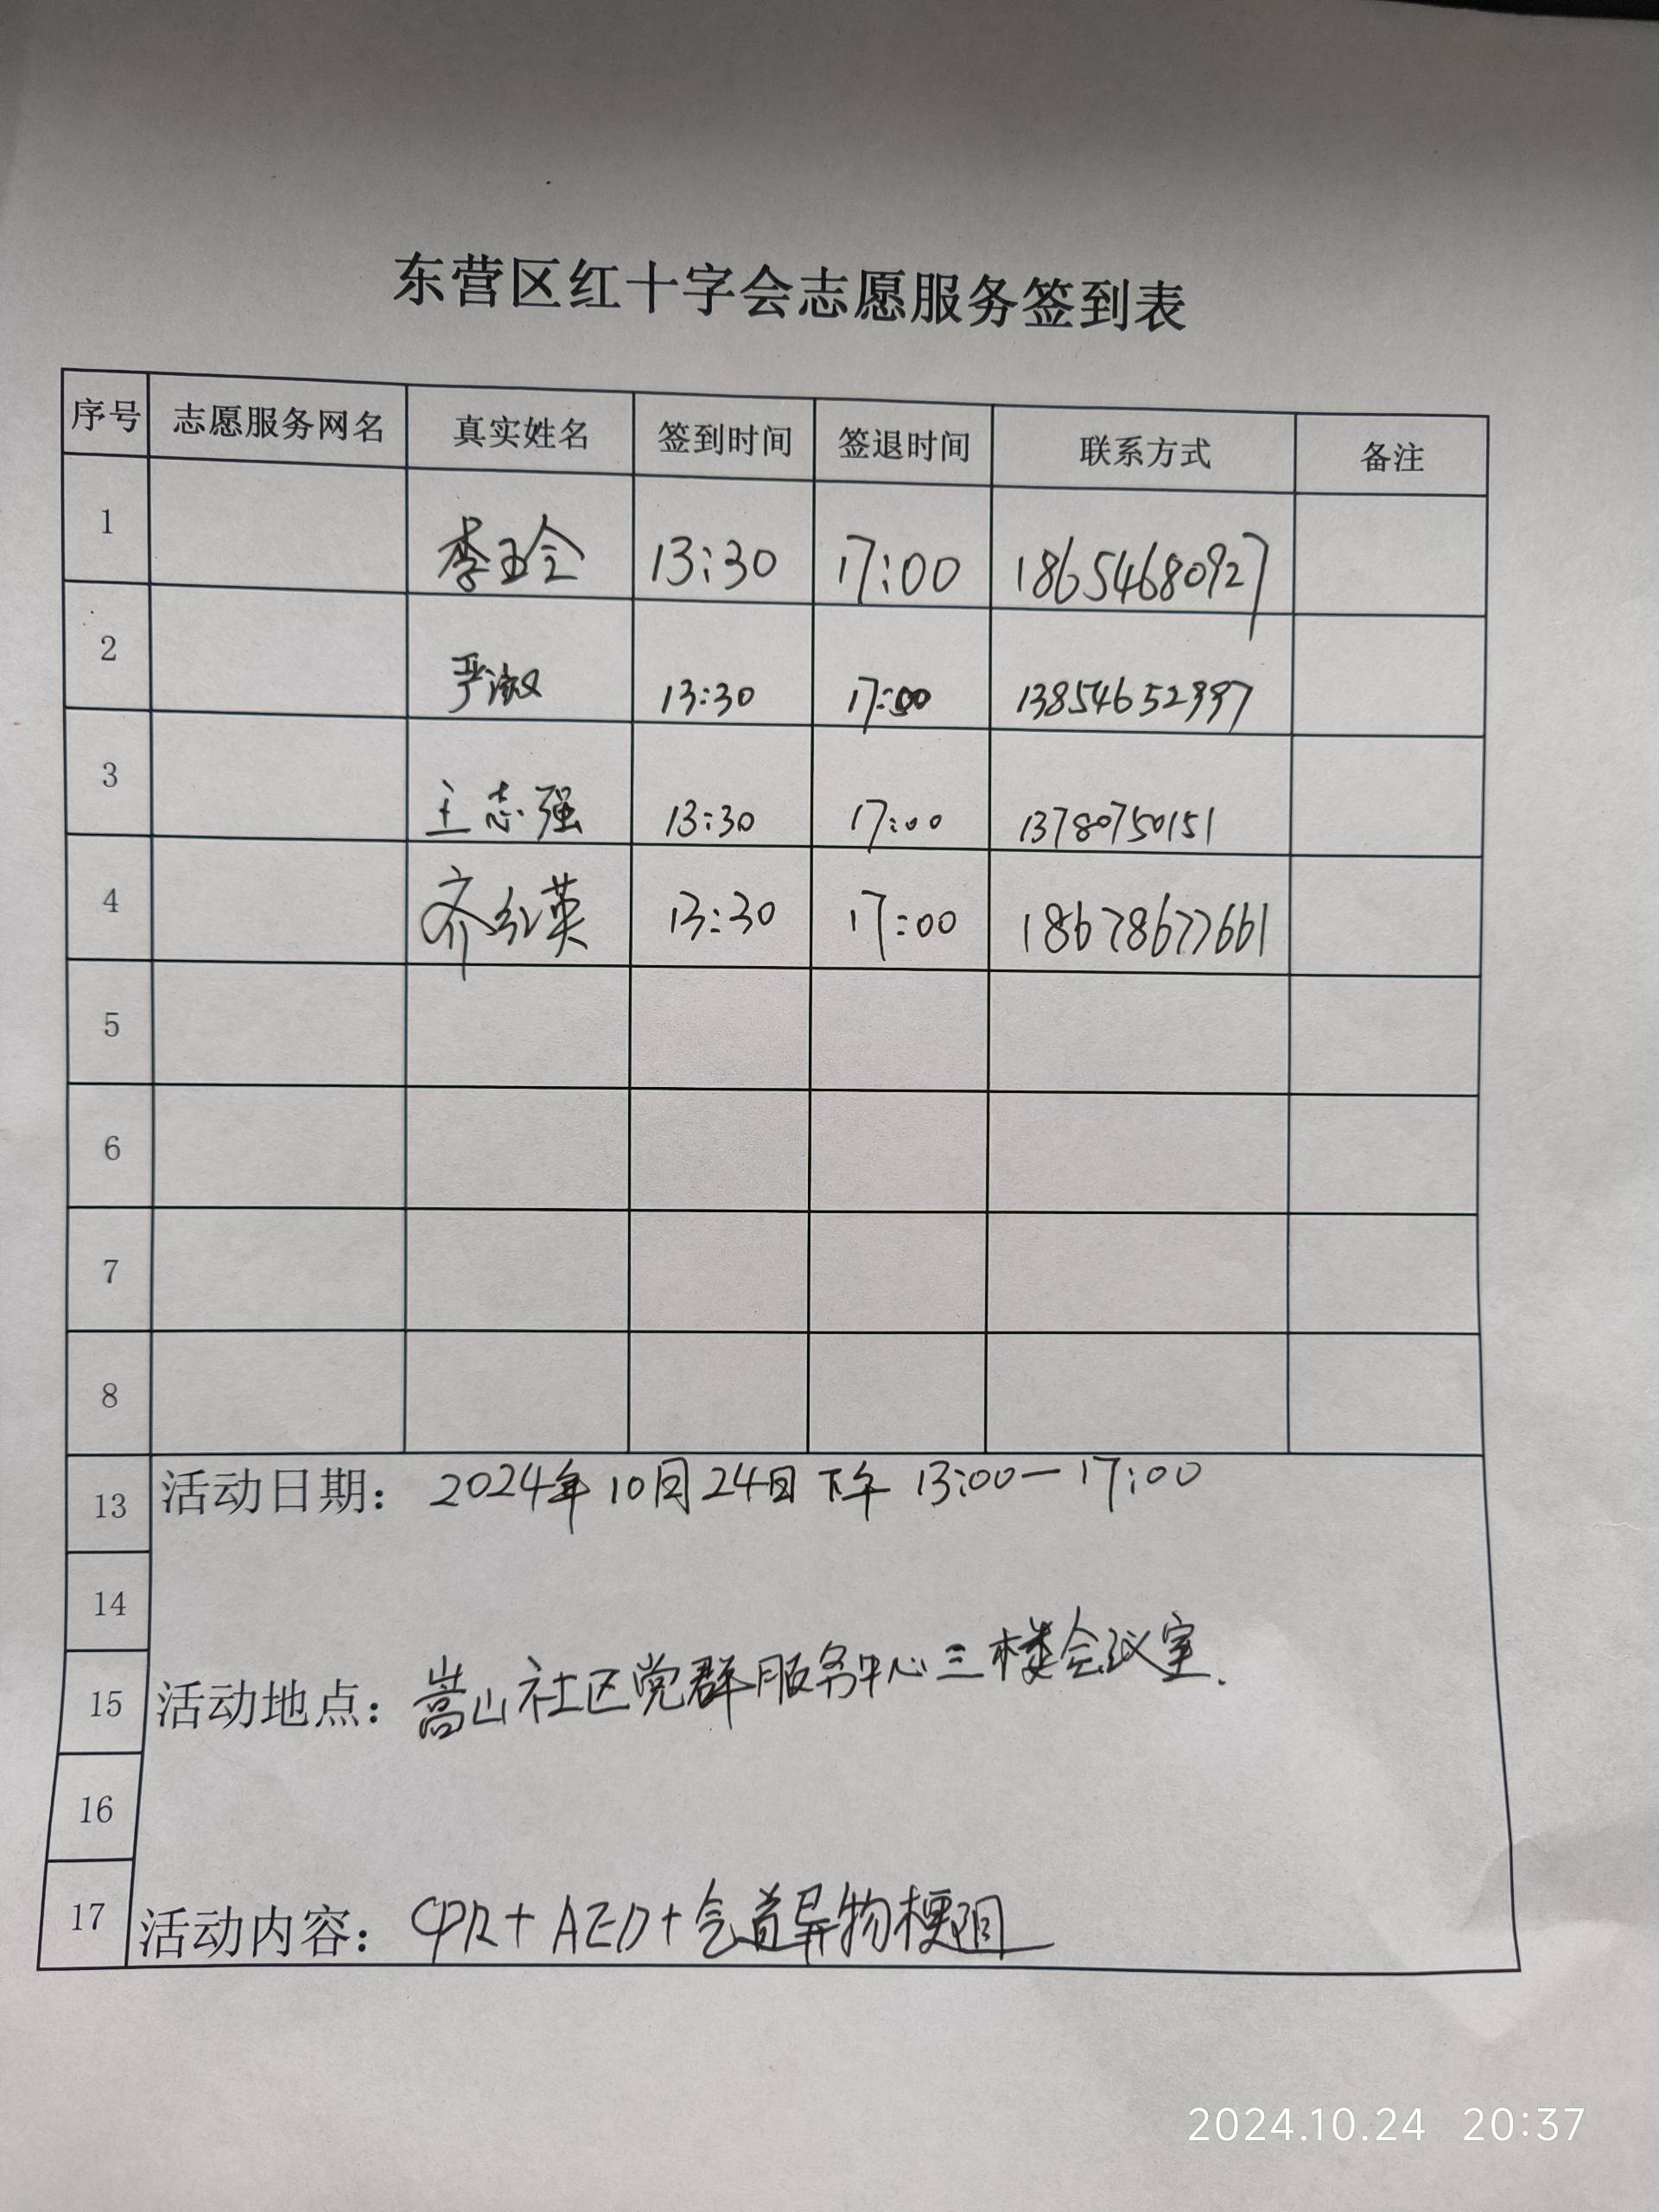 东营区红十字会志愿服务签到表
序号 志愿服务网名 真实姓名 签到时间 签退时间 联系方式 备注
1 李玉全 13:30 17:00 18654680927
2 严淑 13:30 17:00 13854652997
3 王志强 13:30 17:00 13780750151
4 齐红英 13:30 17:00 18678677661
5
6
7
8
13 活动日期：2024年10月24日下午 13:00一17:00
14
15 活动地点：嵩山社区党群服务中心三楼会议室.
16
17 活动内容：CPR+AED+气道异物梗阻
2024.10.24 20:37